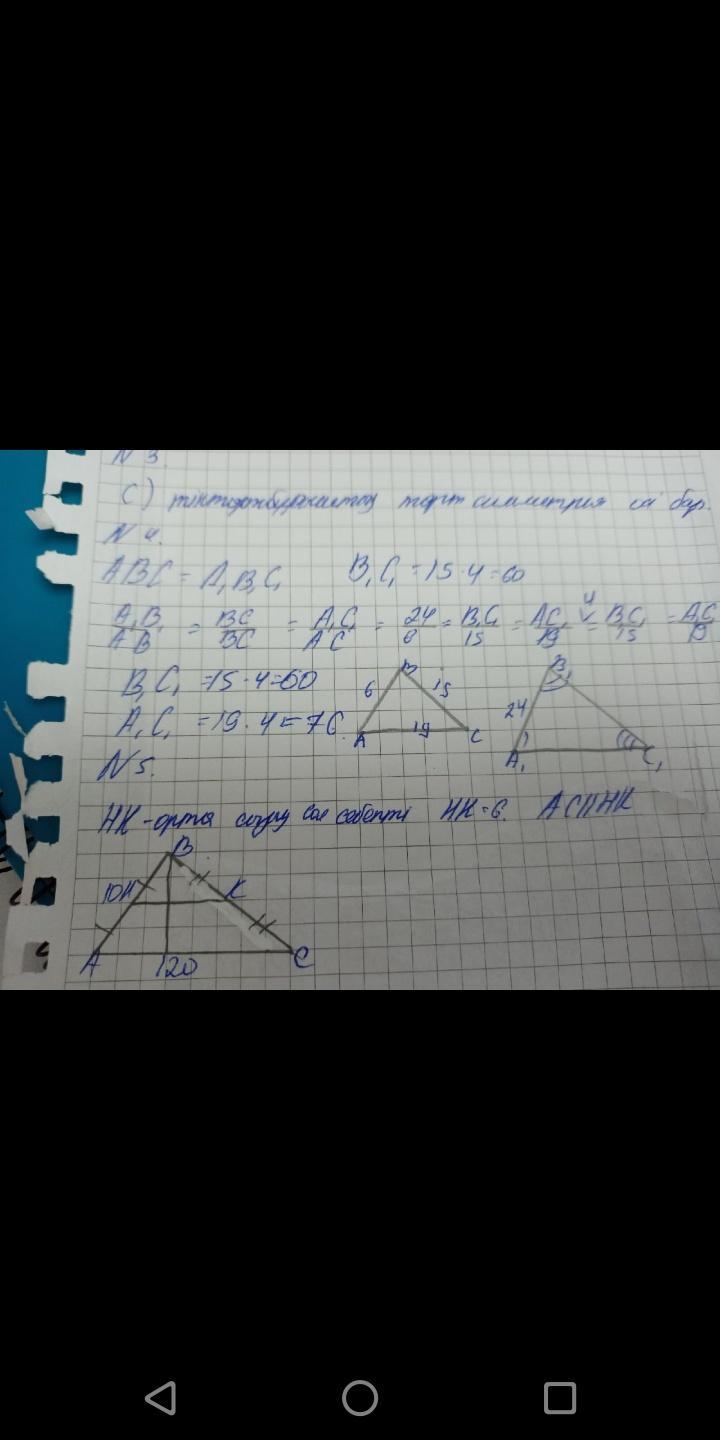 N 3.
C) төрт симметрия сі бар.
N 4.
ABC = A₁B₁C₁ B₁C₁ = 15·4=60
A₁B₁/AB = BC/BC = A₁C₁/AC = 24/6 = B₁C₁/15 = AC₁/19 4 = BC₁/15 = AC₁/19
B₁C₁ =15·4=60
A₁C₁ =19·4=76.
B 6 15 A 19 C
B₁ 24 A₁ C₁
N 5.
НК-орта сызу сол себепті НК=6. AC||НК
B
10 H K
A 120 C